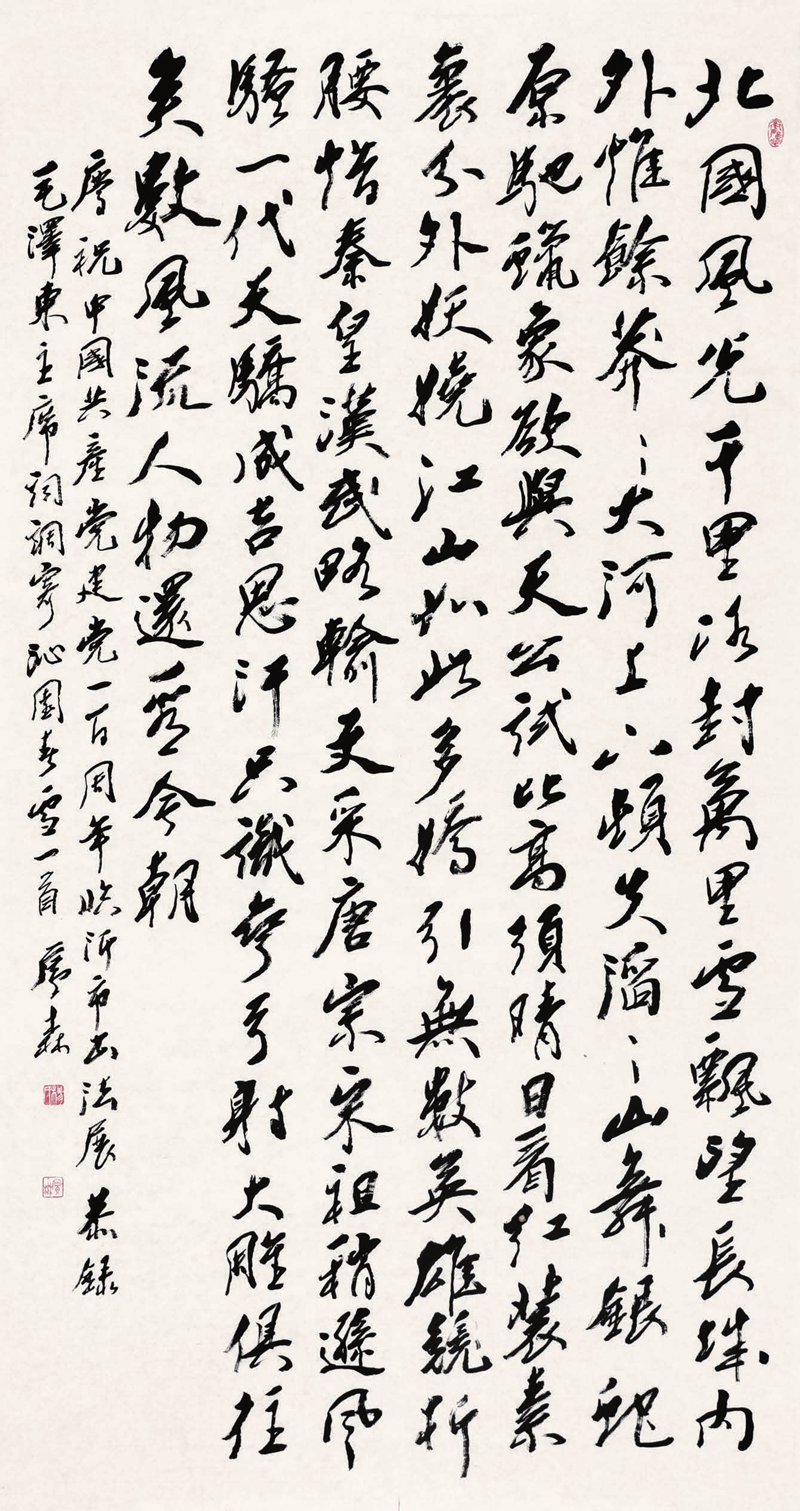 北國風光千里冰封萬里雪飄望長城内
外惟餘莽〻大河上下頓失滔〻山舞銀蛇
原馳蠟象欲與天公試比高須晴日看紅裝素
裹分外妖嬈江山如此多嬌引無數英雄競折
腰惜秦皇漢武略輸文采唐宗宋祖稍遜風
騷一代天驕成吉思汗只識彎弓射大雕俱往
矣數風流人物還看今朝
慶祝中國共產党建党一百周年臨沂市书法展 恭錄
毛澤東主席詞調寄沁園春雪一首 森